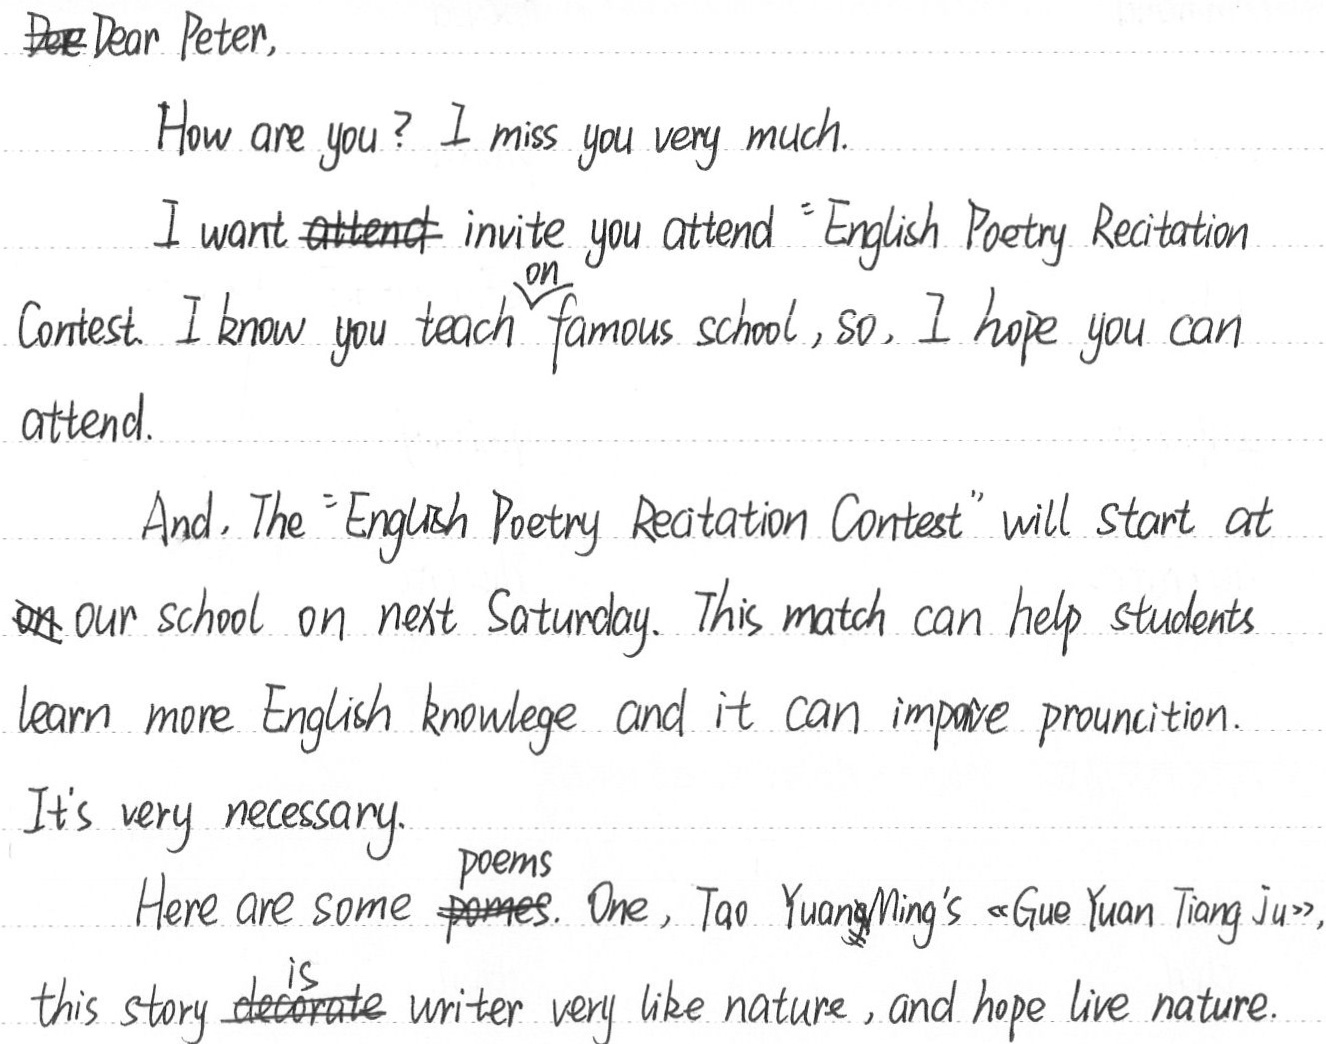 Dear Peter,
How are you? I miss you very much.
I want invite you attend "English Poetry Recitation
Contest. I know you teach on famous school, so, I hope you can
attend.
And, The "English Poetry Recitation Contest" will start at
our school on next Saturday. This match can help students
learn more English knowlege and it can impove prouncition.
It's very necessary.
Here are some poems. One, Tao YuangMing's «Gue Yuan Tiang Ju»,
this story is writer very like nature, and hope live nature.